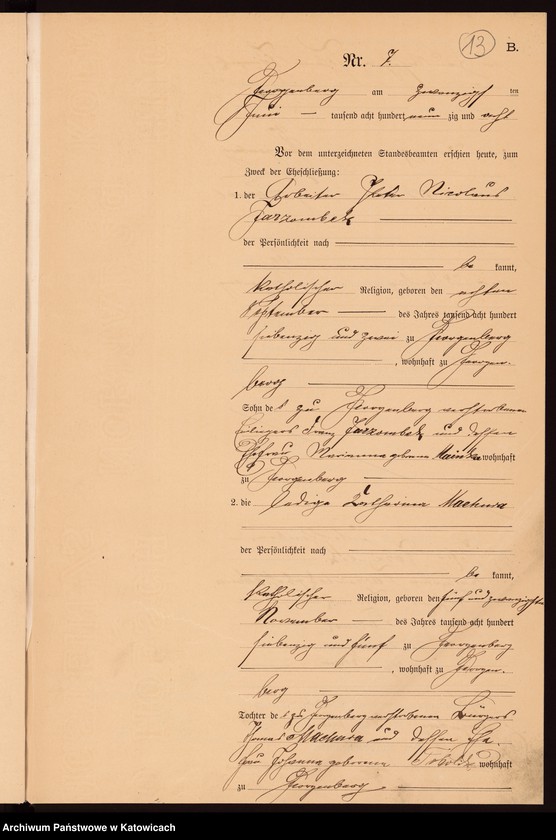 13 B.
Nr. 7.
Georgenberg am zwanzigsten
Juni tausend acht hundert neun zig und acht
Vor dem unterzeichneten Standesbeamten erschien heute, zum
Zweck der Eheschließung:
1. der Arbeiter Peter Nicolaus
Jarzombek
der Persönlichkeit nach
be kannt,
katholischer Religion, geboren den achten
September des Jahres tausend acht hundert
siebenzig und zwei zu Georgenberg
, wohnhaft zu Georgen-
berg
Sohn des zu Georgenberg verstorbenen
Franz Jarzombek und dessen
Ehefrau Marianna geborene wohnhaft
zu Georgenberg
2. die ledige Katharina Machura
der Persönlichkeit nach
be kannt,
katholischer Religion, geboren den fünf und zwanzigsten
November des Jahres tausend acht hundert
siebenzig und fünf zu Georgenberg
, wohnhaft zu Georgen-
berg
Tochter des zu Georgenberg verstorbenen Bürgers
Thomas Machura und dessen Ehe-
frau Johanna geborene wohnhaft
zu Georgenberg
Archiwum Państwowe w Katowicach